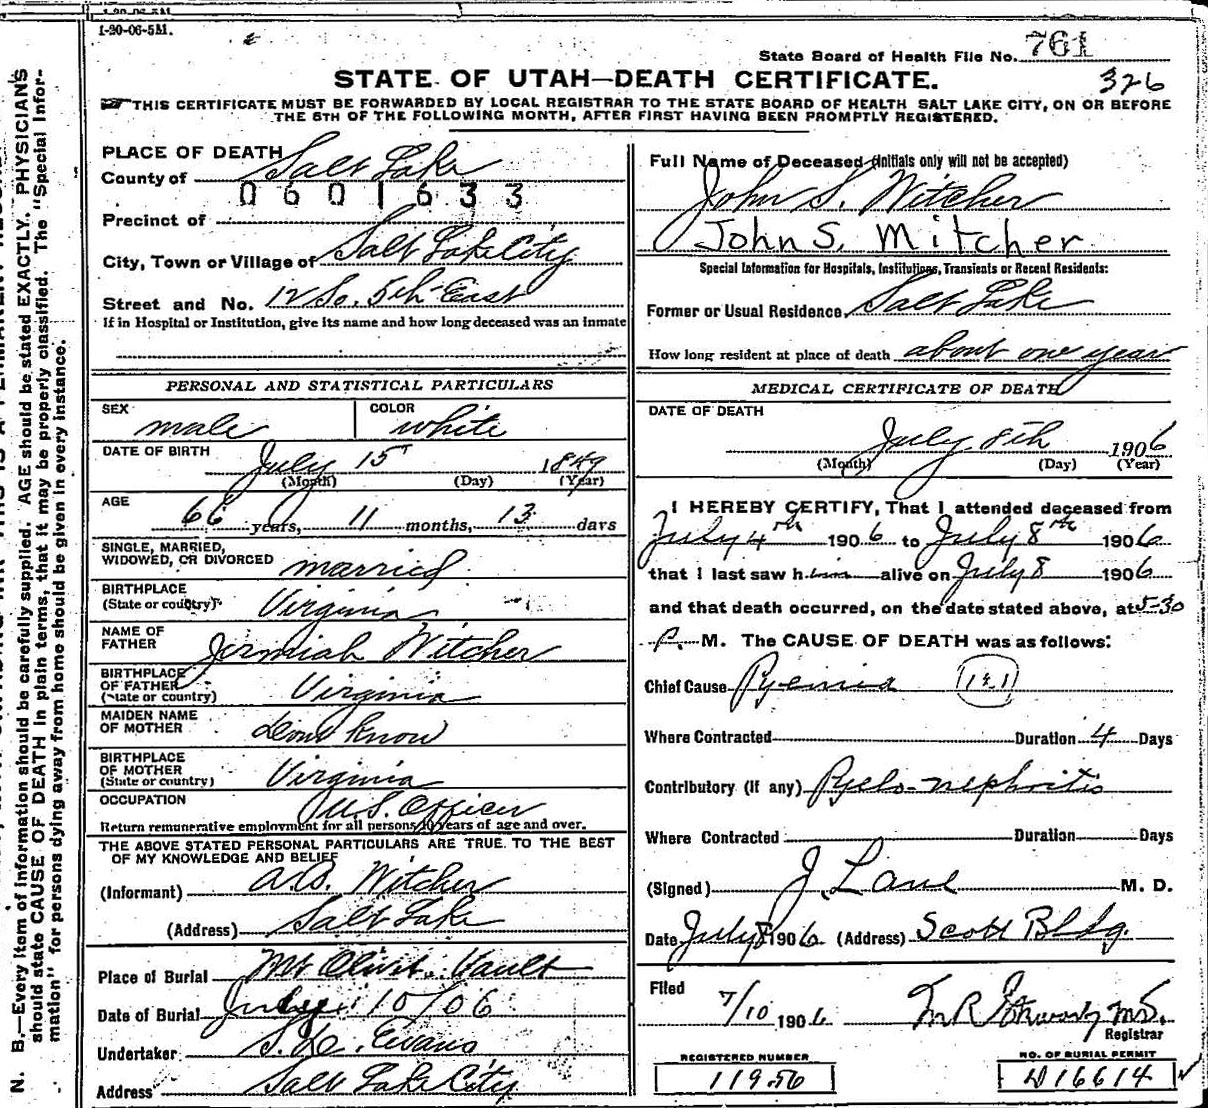 1-20-06-5M.
State Board of Health File No. 761
326
STATE OF UTAH—DEATH CERTIFICATE.
THIS CERTIFICATE MUST BE FORWARDED BY LOCAL REGISTRAR TO THE STATE BOARD OF HEALTH SALT LAKE CITY, ON OR BEFORE
THE 5TH OF THE FOLLOWING MONTH, AFTER FIRST HAVING BEEN PROMPTLY REGISTERED.
PLACE OF DEATH
County of Salt Lake
0601633
Precinct of
City, Town or Village of Salt Lake City
Street and No. 12 So. 5th East
If in Hospital or Institution, give its name and how long deceased was an inmate
PERSONAL AND STATISTICAL PARTICULARS
SEX male COLOR white
DATE OF BIRTH July 15 1849
(Month) (Day) (Year)
AGE 66 years, 11 months, 13 days
SINGLE, MARRIED,
WIDOWED, OR DIVORCED married
BIRTHPLACE
(State or country) Virginia
NAME OF
FATHER Jermiah Witcher
BIRTHPLACE
OF FATHER
(State or country) Virginia
MAIDEN NAME
OF MOTHER Dont Know
BIRTHPLACE
OF MOTHER
(State or country) Virginia
OCCUPATION U.S. Officer
Return remunerative employment for all persons 10 years of age and over.
THE ABOVE STATED PERSONAL PARTICULARS ARE TRUE TO THE BEST
OF MY KNOWLEDGE AND BELIEF
(Informant) A.B. Witcher
(Address) Salt Lake
Place of Burial Mt Olivet Vault
Date of Burial July 10/06
Undertaker S.D. Evans
Address Salt Lake City
Full Name of Deceased (Initials only will not be accepted)
John S. Witcher
John S. Mitcher
Special Information for Hospitals, Institutions, Transients or Recent Residents:
Former or Usual Residence Salt Lake
How long resident at place of death about one year
MEDICAL CERTIFICATE OF DEATH
DATE OF DEATH
July 8th 1906
(Month) (Day) (Year)
I HEREBY CERTIFY, That I attended deceased from
July 4th 1906 to July 8th 1906
that I last saw him alive on July 8 1906
and that death occurred, on the date stated above, at 5-30
P. M. The CAUSE OF DEATH was as follows:
Chief Cause Pyemia
Where Contracted Duration 4 Days
Contributory (if any) Pyelo-nephritis
Where Contracted Duration Days
(Signed) J. Lane M. D.
Date July 8 1906 (Address) Scott Bldg.
Filed
7/10 1906
Registrar
REGISTERED NUMBER
11956
NO. OF BURIAL PERMIT
D16614
N. B.—Every item of information should be carefully supplied. AGE should be stated EXACTLY. PHYSICIANS
should state CAUSE OF DEATH in plain terms, that it may be properly classified. The "Special Infor-
mation" for persons dying away from home should be given in every instance.